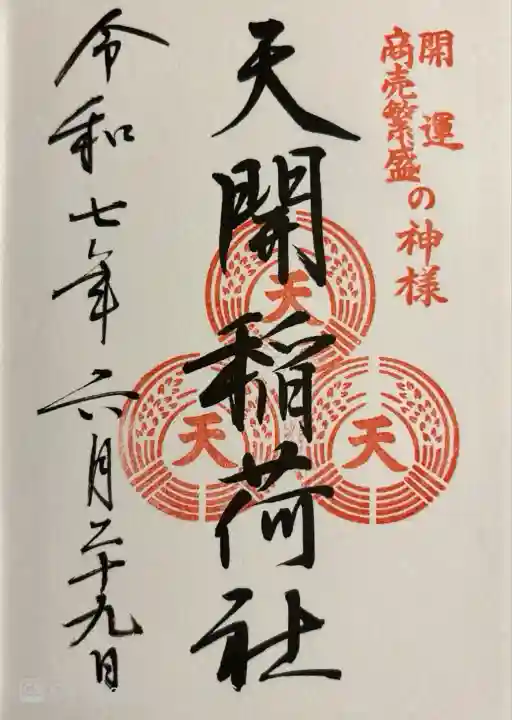 開運
商売繁盛
の神様
天開稲荷社
天
天
天
令和七年六月二十九日